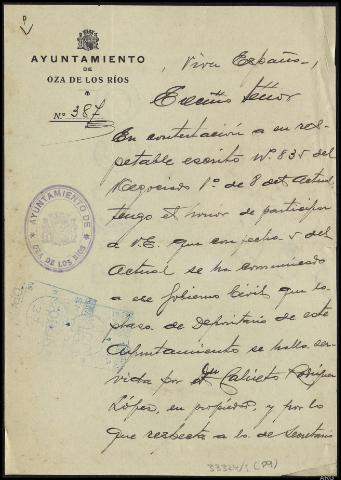 AYUNTAMIENTO
DE
OZA DE LOS RÍOS
Nº 387
¡Viva España!
Excmo Señor
En contestación a su res-
petable escrito Nº 835 del
Negociado 1º de 8 del Actual,
tengo el honor de participar
a V.E. que con fecha 5 del
Actual se ha comunicado
a ese Gobierno Civil que la
plaza de Depositario de este
Ayuntamiento se halla ser-
vida por Calixto
López, en propiedad, y por lo
que respecta a la de Secretario
AYUNTAMIENTO DE
OZA DE LOS RÍOS
33324/1 (P9)